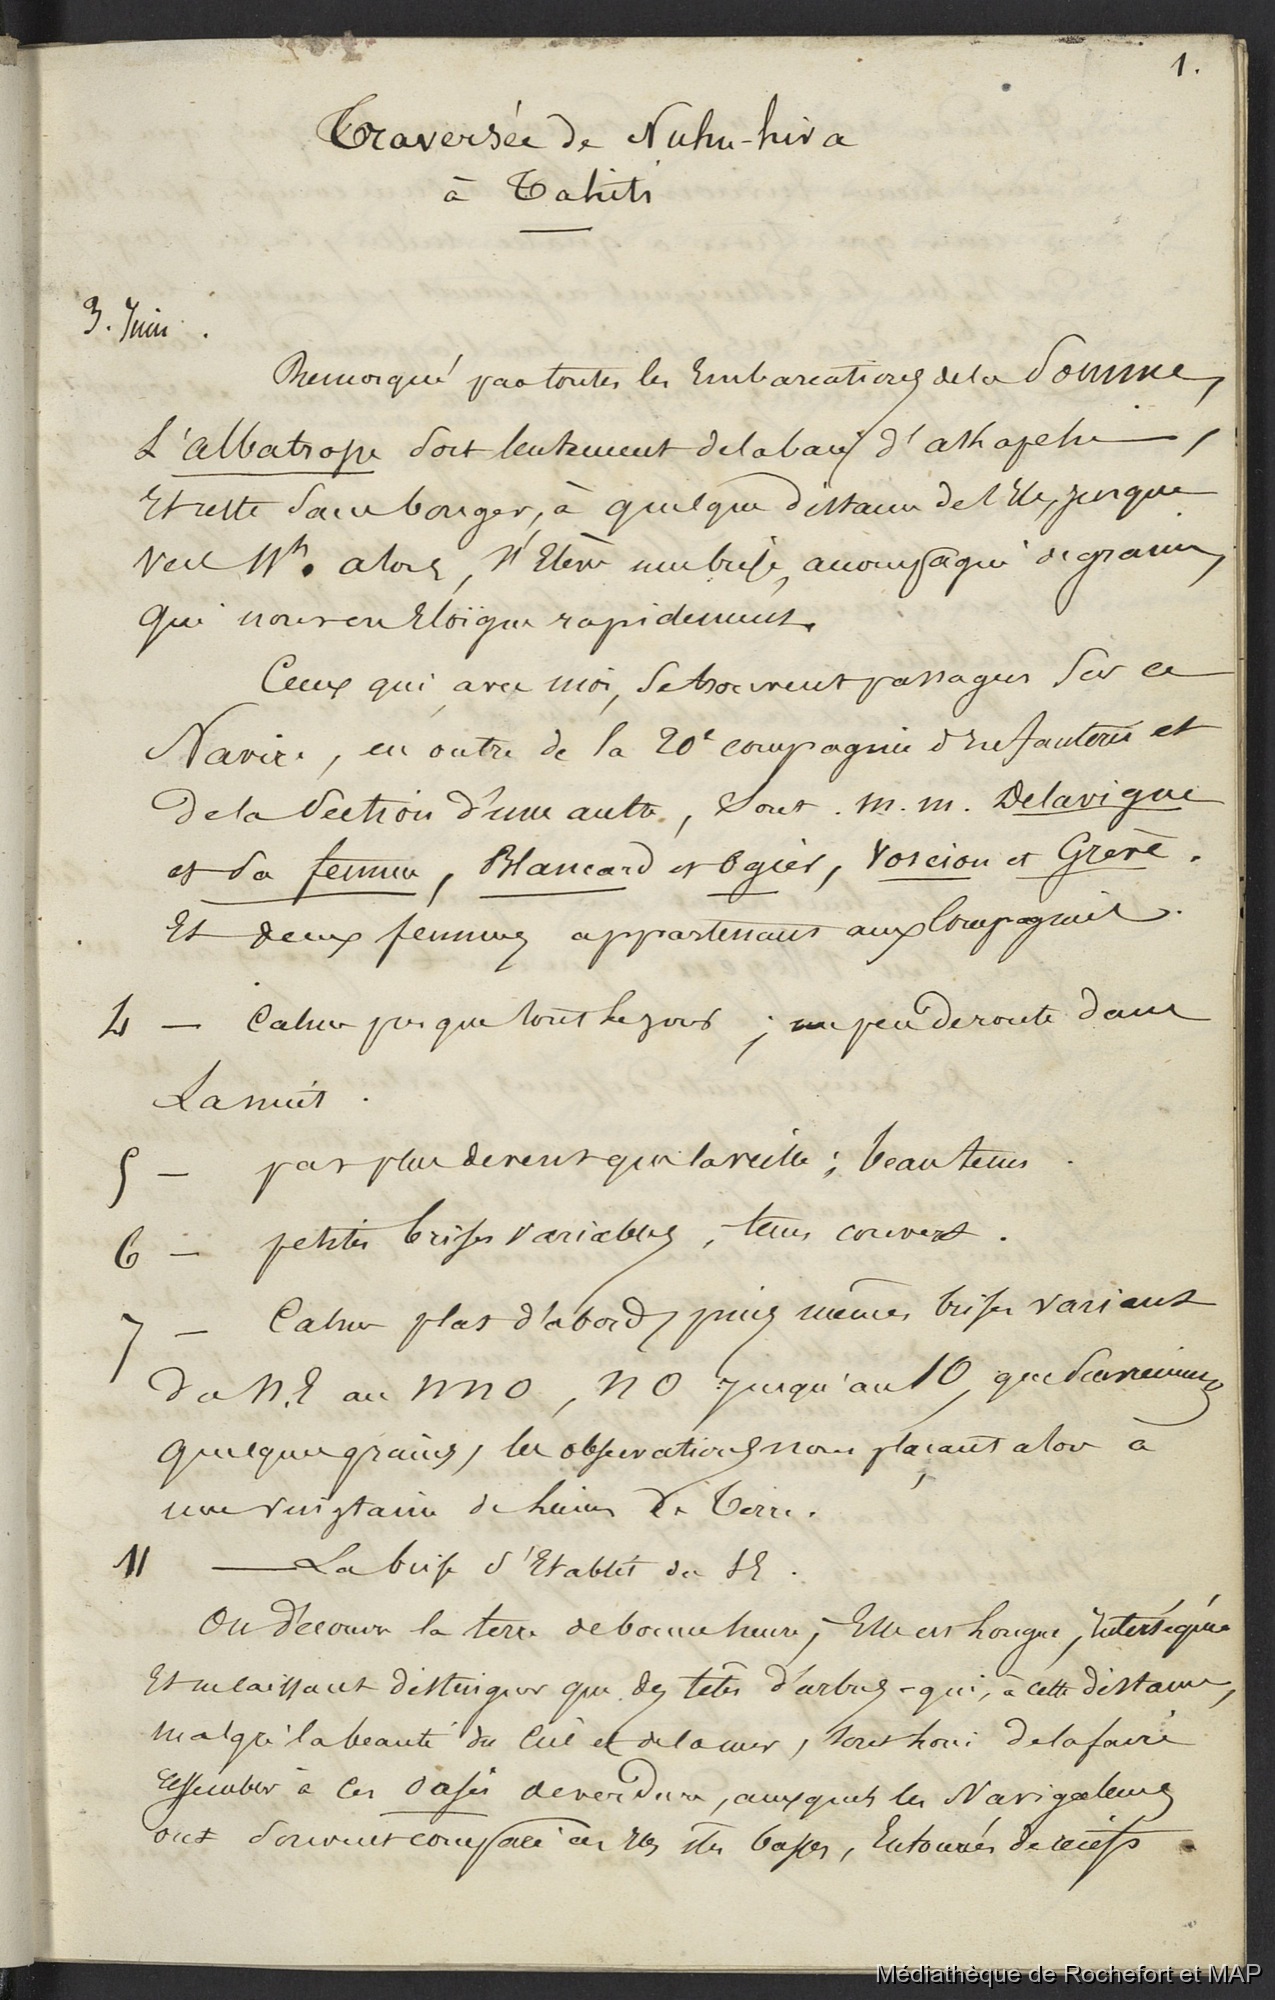 1.
Traversée de Nuhu-hiva
à Tahiti
3. Juin.
Remorqué par toutes les Embarcations de la Somme,
L'albatrosse sort lentement de la baie d'
Et reste sans bouger, à quelque distance de l'Ile, jusque
Vers 11h. alors, s'Elève une brise, accompagnée de grains,
qui nous en Eloigne rapidement.
Ceux qui, avec moi, se trouvent passagers sur ce
Navire, en outre de la 20e compagnie d'Infanterie et
de la Section d'une autre, sont. m. m. Delavigne
et sa femme, Blancard et Ogier, et Grère.
Et deux femmes appartenant aux Compagnies.
4 — Calme jusque tout le jour ; un peu de route dans
La nuit.
5 — pas plus de vent que la veille ; beau tems.
6 — petites brises variables, tems couvert.
7 — Calme plat d'abord, puis mêmes brises variant
Du N.E au NNO, NO jusqu'au 10, que
quelques grains, les observations nous plaçant alors à
une vingtaine de lieues de Terre.
11 — La brise s'Etablit du SE.
On découvre la terre de bonne heure, Elle est longue,
Et ne laissant distinguer que des têtes d'arbres - qui, à cette distance,
malgré la beauté du Ciel et de la mer, sont loin de la faire
ressembler à ces oasis de verdure, auxquels les Navigateurs
ont souvent comparé ces îles basses, Entourées de récifs.
Médiathèque de Rochefort et MAP